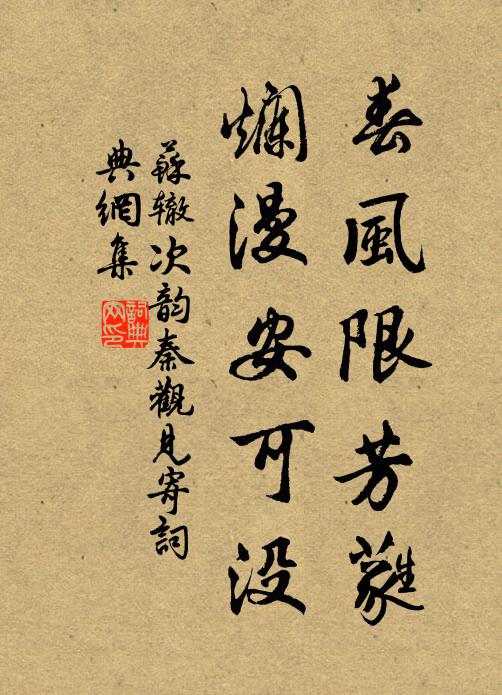 春風限芳蕤
爛漫安可没
蘇辙次韵秦觀見寄詞
典網集
詞典
网印